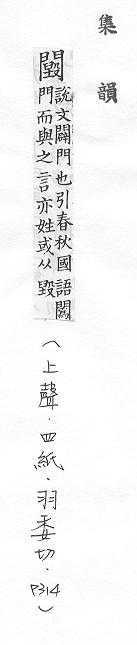 集韻
說文闢門也引春秋國語䦱
門而與之言亦姓或从毀
(上聲.四紙.羽委切.P314)